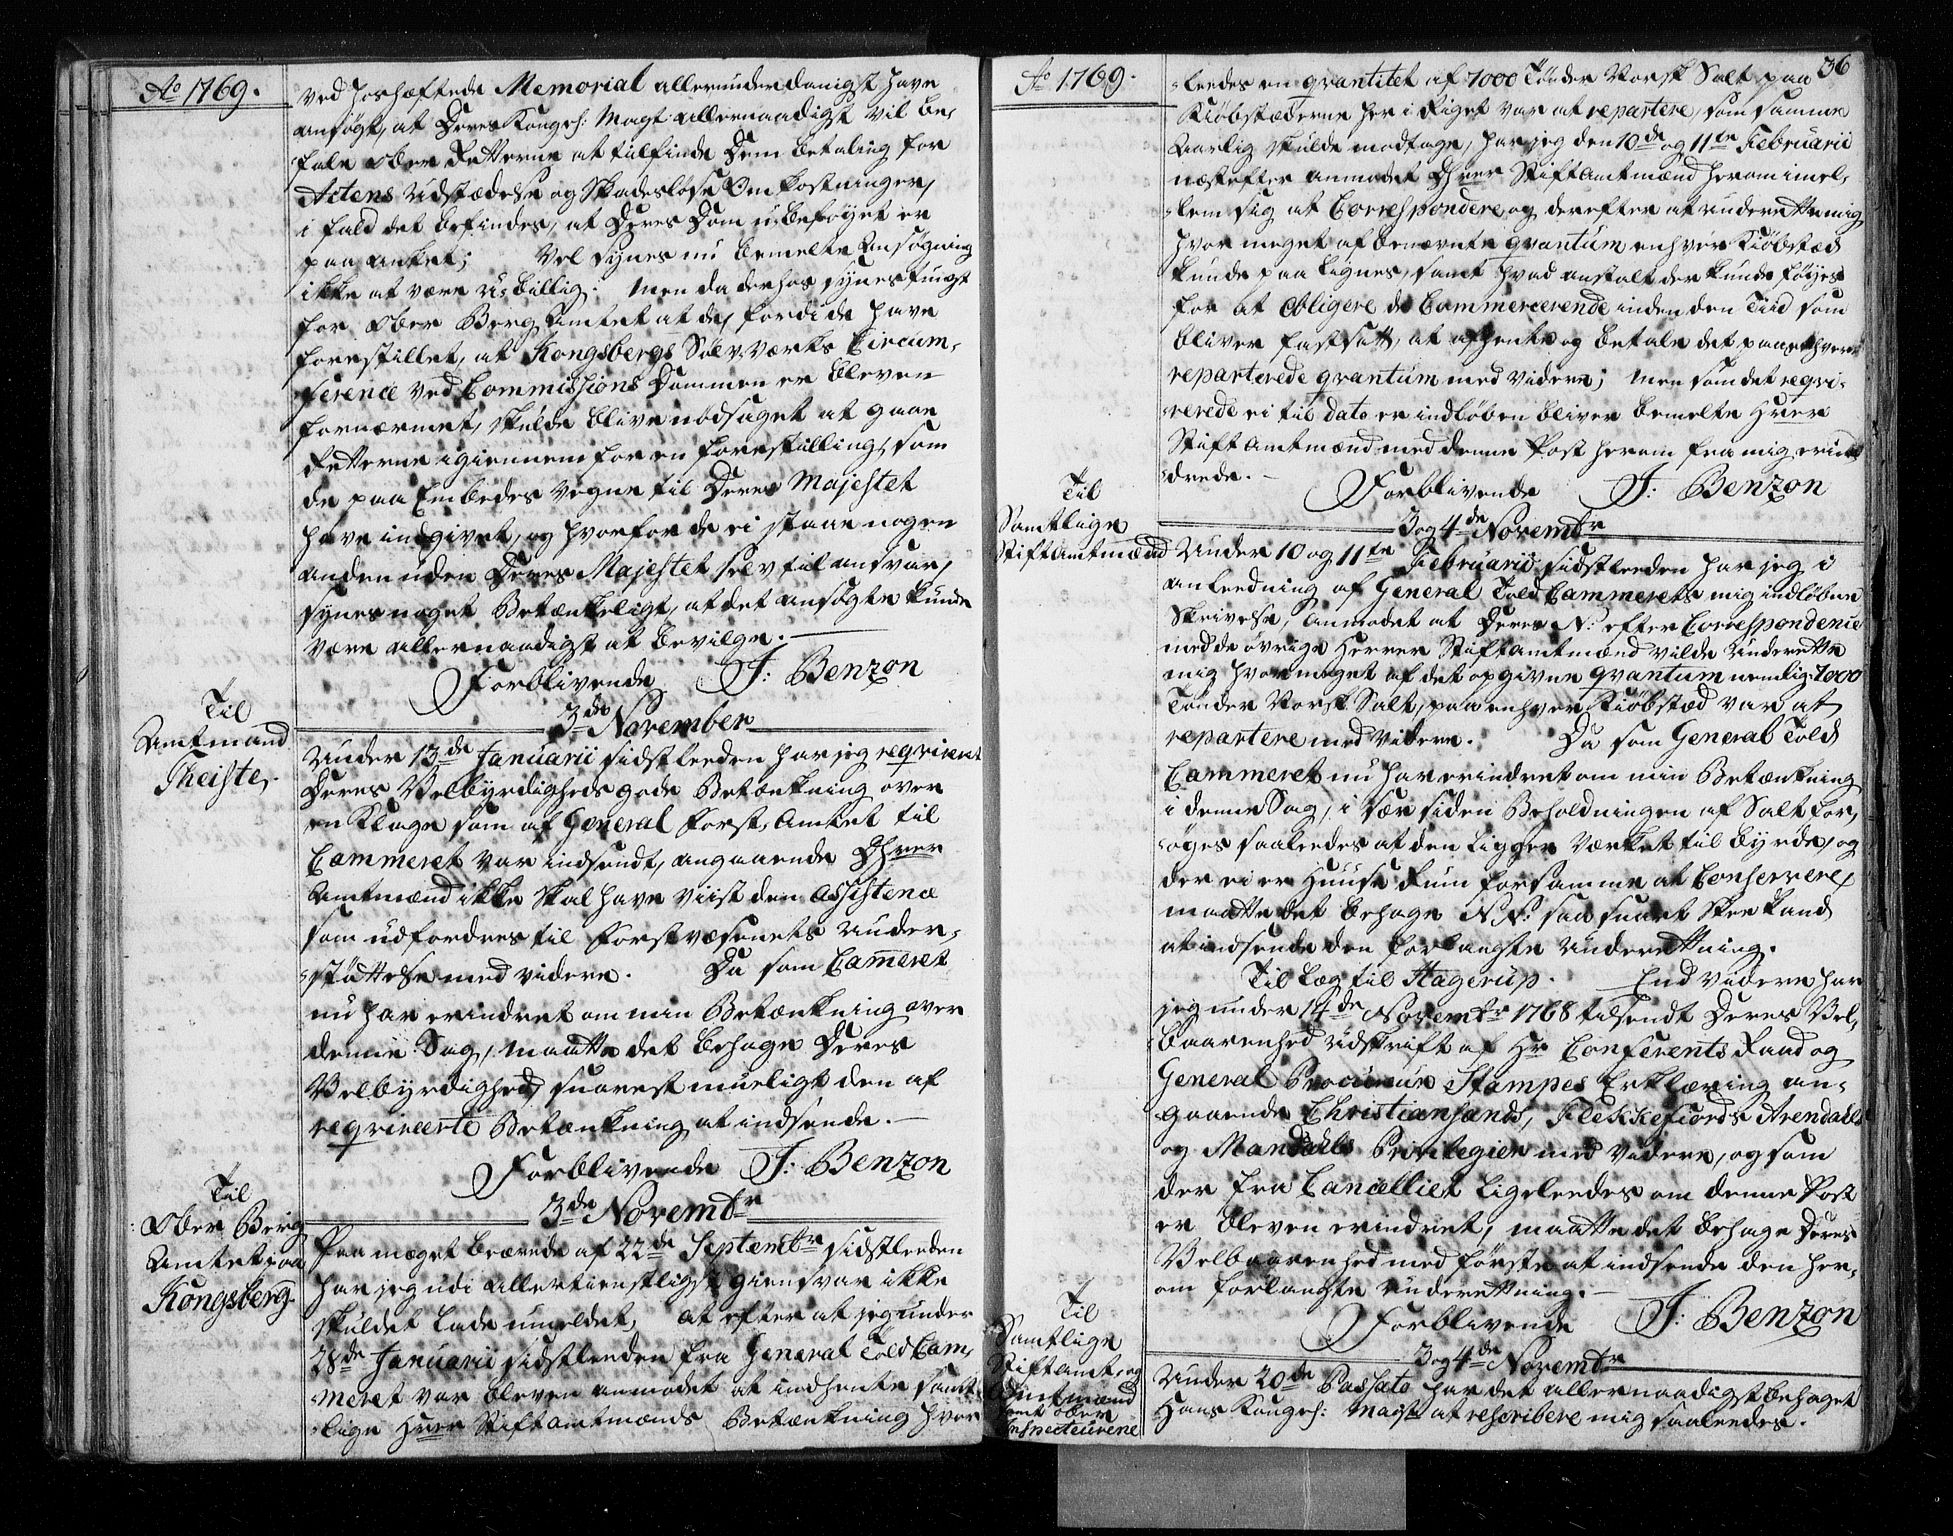 Ao 1769.
ved hoshæftede Memorial allerunderdanigst have
ansøgt, at Deres Kongel: Mayt: allernaadigst vil be-
fale Ober Retterne at tilfinde Dem betaling for
Actens Udstædelse og Skadesløse Omkostninger,
i fald det befindes, at Deres Dom u-beføyet er
paa anket; Vel synes nu bemelte Ansøgning
ikke at være u-billig. Men da derhos synes
for Ober Berg Amtet at de, fordi de have
forestillet, at Kongsbergs Sølv-Værks Circum-
ference ved Commissions Dommen er bleven
fornærmet, skulde blive nødsaget at gaae
Retterne igiennem for en forestilling, som
de paa Embedes Vegne til Deres Majestet
have indgivet, og hvorfor de ei staae nogen
anden uden Deres Majestet selv til ansvar,
synes noget Betænkeligt, at det ansøgte kunde
være allernaadigst at bevilge.
Forblivende J: Benzon
3de November
Til
Amtmand
Theiste.
Under 13de Januarii sidstleeden har jeg reqvireret
Deres Velbyrdigheds gode Betænkning over
en Klage som af General Forst-Amtet til
Cammeret var indsendt, angaaende Dhrer
Amtmænd ikke skal have viist den Assistence
som udfordres til Forstvæsenets Under-
støttelse med videre. Da som Cam̄eret
nu har erindret om min Betænkning over
denne Sag, maatte det behage Deres
Velbyrdighed, snarest mueligt den af
reqvireerte Betænkning at indsende.
Forblivende J: Benzon
3de Novembr
Til
Ober Berg
Amtet paa
Kongsberg.
Paa meget bærede af 22de Septembr sidstleeden
har jeg udi allertienstligst giensvar ikke
skuldet lade umeldet, at efter at jeg under
28de Januarii sidstleeden fra General Told Cam-
meret var bleven anmodet at indhente samt-
lige Hrer Stiftamtmænds Betænkning hvor-
Ao 1769.
36
-leedes en qvantitet af 7000 Tønder Norsk Salt paa
Kiøbstæderne her i Riget var at repartere, som samme
Aarlig skulde modtage, har jeg den 10de og 11te Februarii
næstefter anmodet Dhrer Stiftamtmænd herom imel-
-lem sig at Correspondere og derefter at underrette mig
hvor meget af benævnte qvantum enhver Kiøbstæd
kunde paa lignes, samt hvad anstalt der kunde føyes
for at obligere de Commercerende inden den Tiid som
bliver fastsatt, at afhente og betale det paa enhver
reparterede qvantum med videre; Men som det reqvi-
-rerede ei til dato er indløben bliver bemelte Hrer
Stiftamtmænd med denne Post herom fra mig erin-
-drede.
Forblivende J: Benzon
3 og 4de Novembr
Til
Samtlige
Stiftamtmænd
Under 10 og 11te Februarii sidstleeden har jeg i
anleedning af General Told Cammerets mig indløbne
Skrivelse, anmodet at Deres N: efter Correspondence
med de øvrige Herrer Stiftamtmænd vilde underrette
mig hvormeget af det opgivne qvantum nemlig 7000
Tønder Norsk Salt, paa enhver Kiøbstæd var at
repartere med videre. Da som General Told
Cammeret nu har erindret om min Betænkning
i denne Sag, i sær siden Beholdningen af Salt for-
-øges saaleedes at den ligger Værket til byrde, og
der ei er Huuse Rum for samme at Conservere,
maatte det behage N.N: saa snart skee kand
at indsende den forlangte underrettning.
Til Læg til Hagerup. End videre har
jeg under 14de Novembr 1768 tilsendt Deres Vel-
baarenhed udskrift af Hr Conferents Raad og
General Procureur Stampes Erklæring an-
gaaende Christiansands, Flekkefiords Arendahls
og Mandahls Privilegier med videre, og som
der fra Cancelliet ligeleedes om denne Post
er bleven erindret, maatte det behage Deres
Velbaarenhed med første at indsende den her-
om forlangte underrettning.
Forblivende J: Benzon
3 og 4de Novembr
Til
Samtlige
Stiftamt- og
Amtmænd
samt ober
Inspecteurene
Under 20de Passato har det allernaadigst behaget
Hans Kongel: Mayt: at rescribere mig saaleedes.